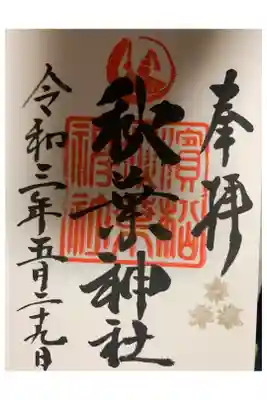 奉拝
秋葉神社
濱松
秋葉
神社
令和三年五月二十九日